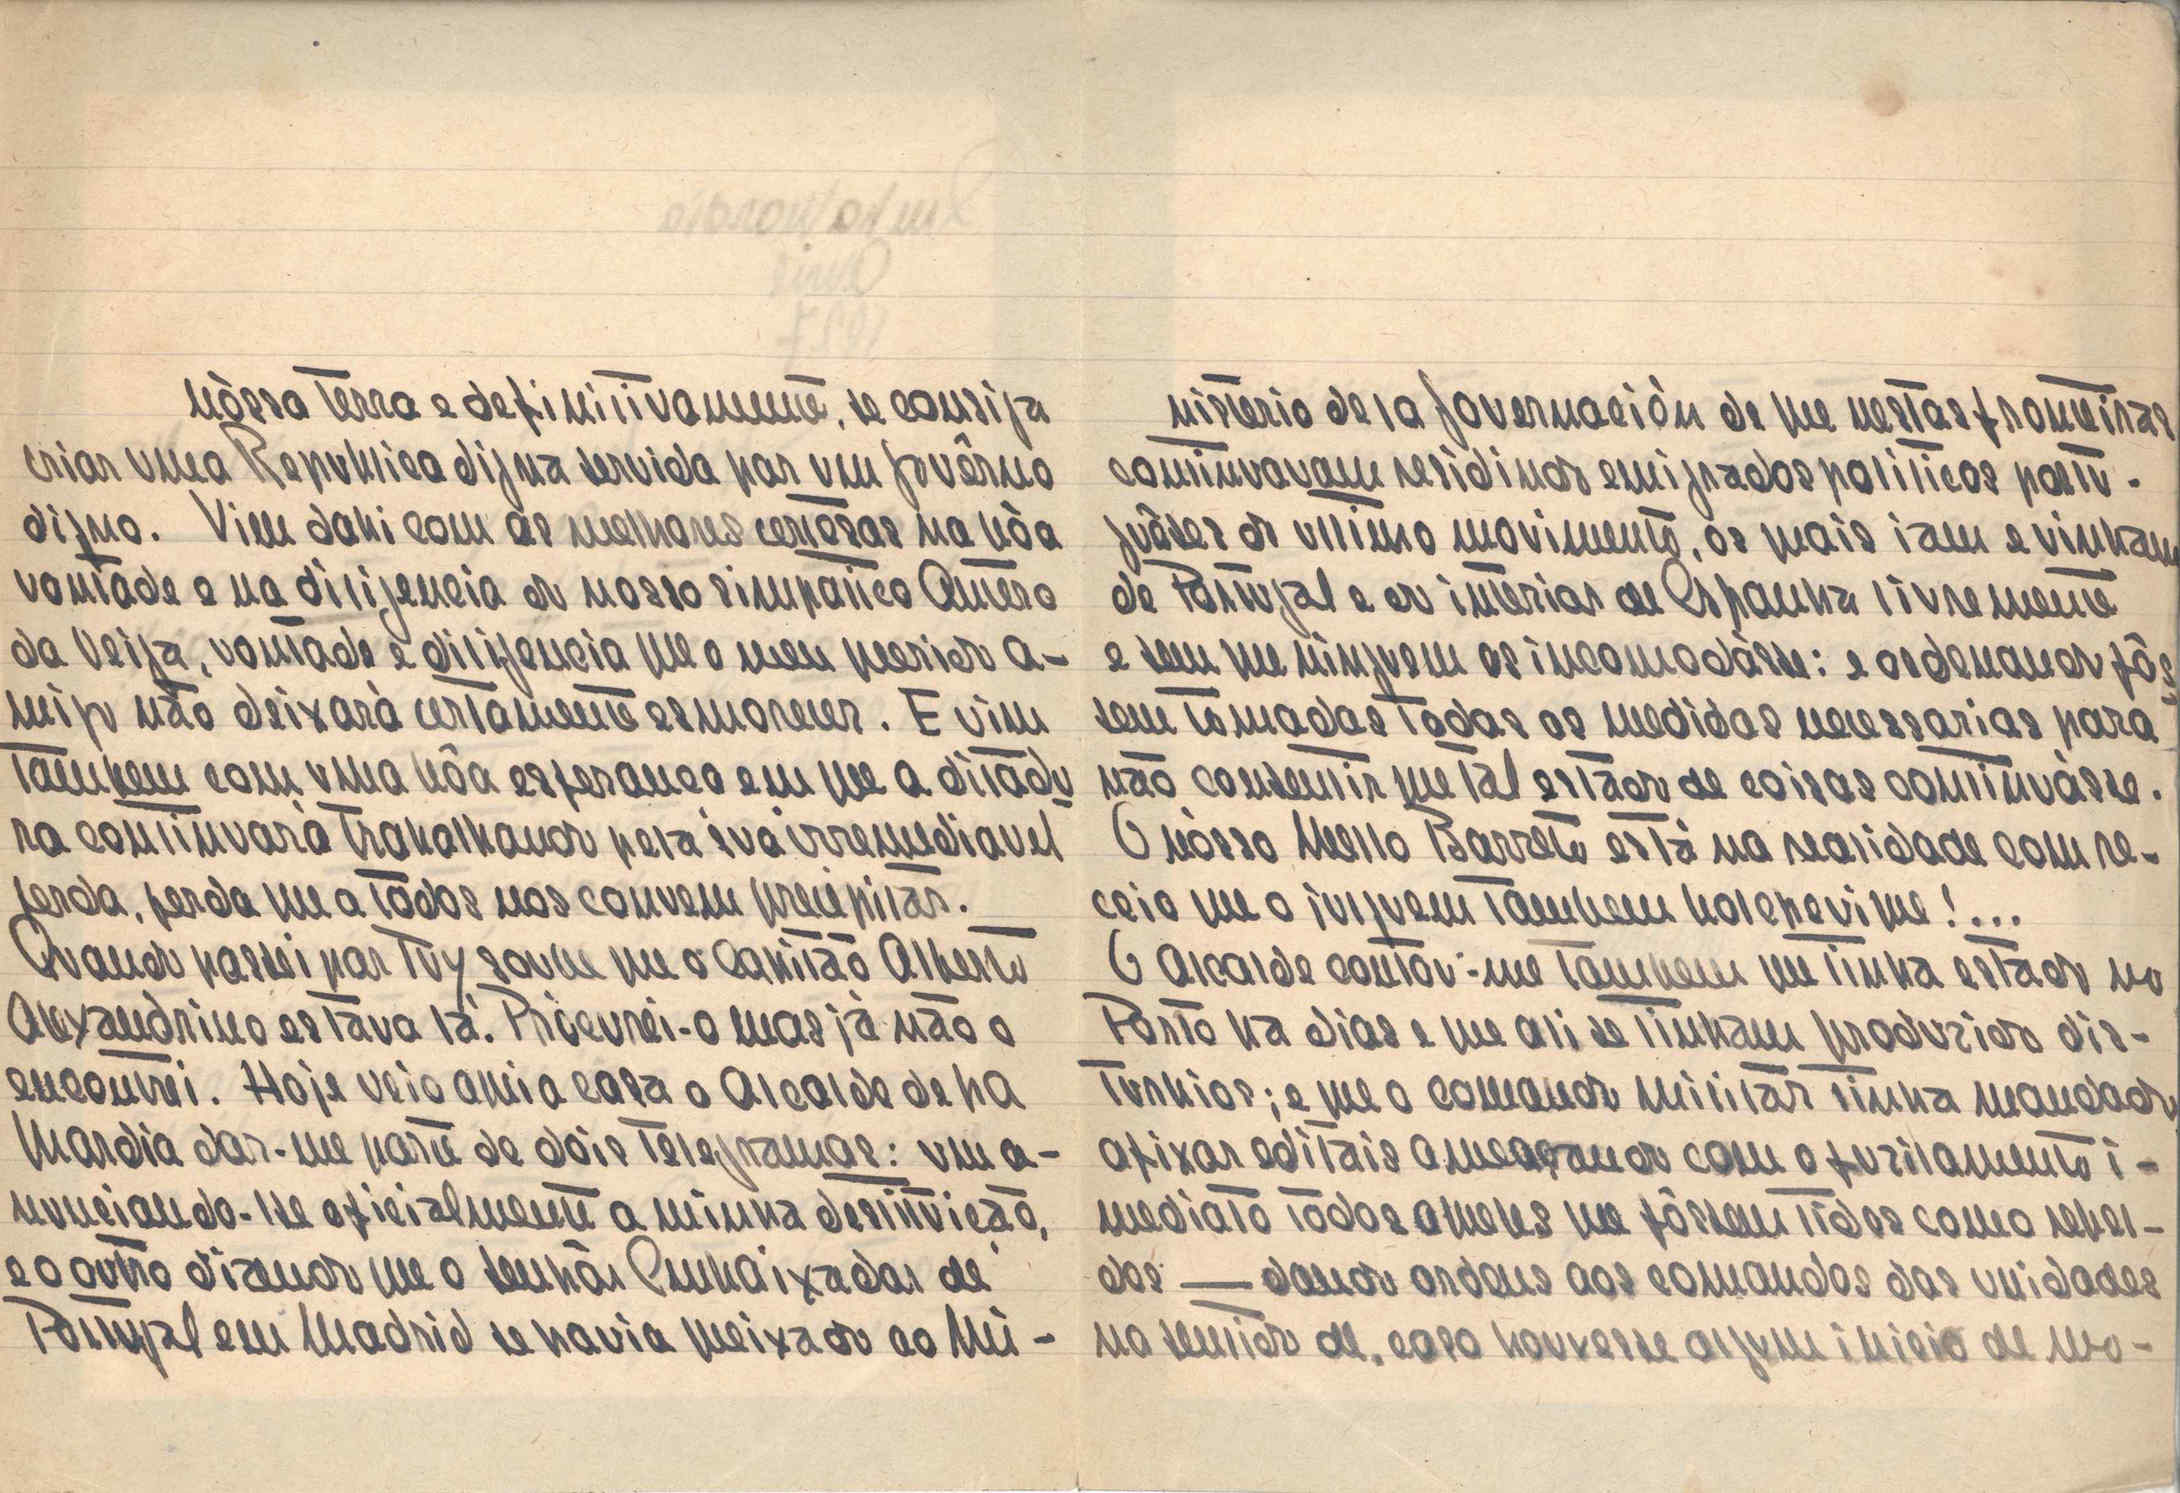 nóssa terra e definitivamente, se consiga
criar uma Republica digna servida por um govêrno
digno. Vim dahi com as melhores certêsas na bôa
vontade e na diligencia do nosso simpatico Antero
da Veiga, vontade e diligencia que o meu querido a-
migo não deixará certamente esmorecer. E vim
tambem com uma bôa esperança em que a ditadu
ra continuará trabalhando pela sua irremediavel
perda, perda que a todos nos convem precipitar.
Quando passei por Tuy soube que o Capitão Alberto
Alexandrino estava lá. Procurei-o mas já não o
encontrei. Hoje veio aqui a casa o Alcalde de La
Guardia dar-me parte de dois telegramas: um a-
nunciando-lhe oficialmente a minha destituição,
e o outro dizendo que o senhôr Embaixador de
Portugal em Madrid se havia queixado ao Mi-
nisterio de la Governación de que nestas fronteiras
continuavam residindo emigrados politicos portu-
guêses do ultimo movimento, os quais iam e vinham
de Portugal e do interior de Espanha livremente
e sem que ninguem os incomodásse: e ordenando fôs
sem tomadas todas as medidas necessarias para
não consentir que tal estado de coisas continuásse.
O nósso Mello Barreto está na realidade com re-
ceio que o julguem tambem bolchevique!...
O Alcalde contou-me tambem que tinha estado no
Porto ha dias e que ali se tinham produzido dis-
turbios; e que o comando militar tinha mandado
afixar editais ameaçando com o fuzilamento i-
mediato todos aqueles que fôssem tidos como rebel-
des — dando ordens aos comandos das unidades
no sentido de, caso houvesse algum inicio de mo-